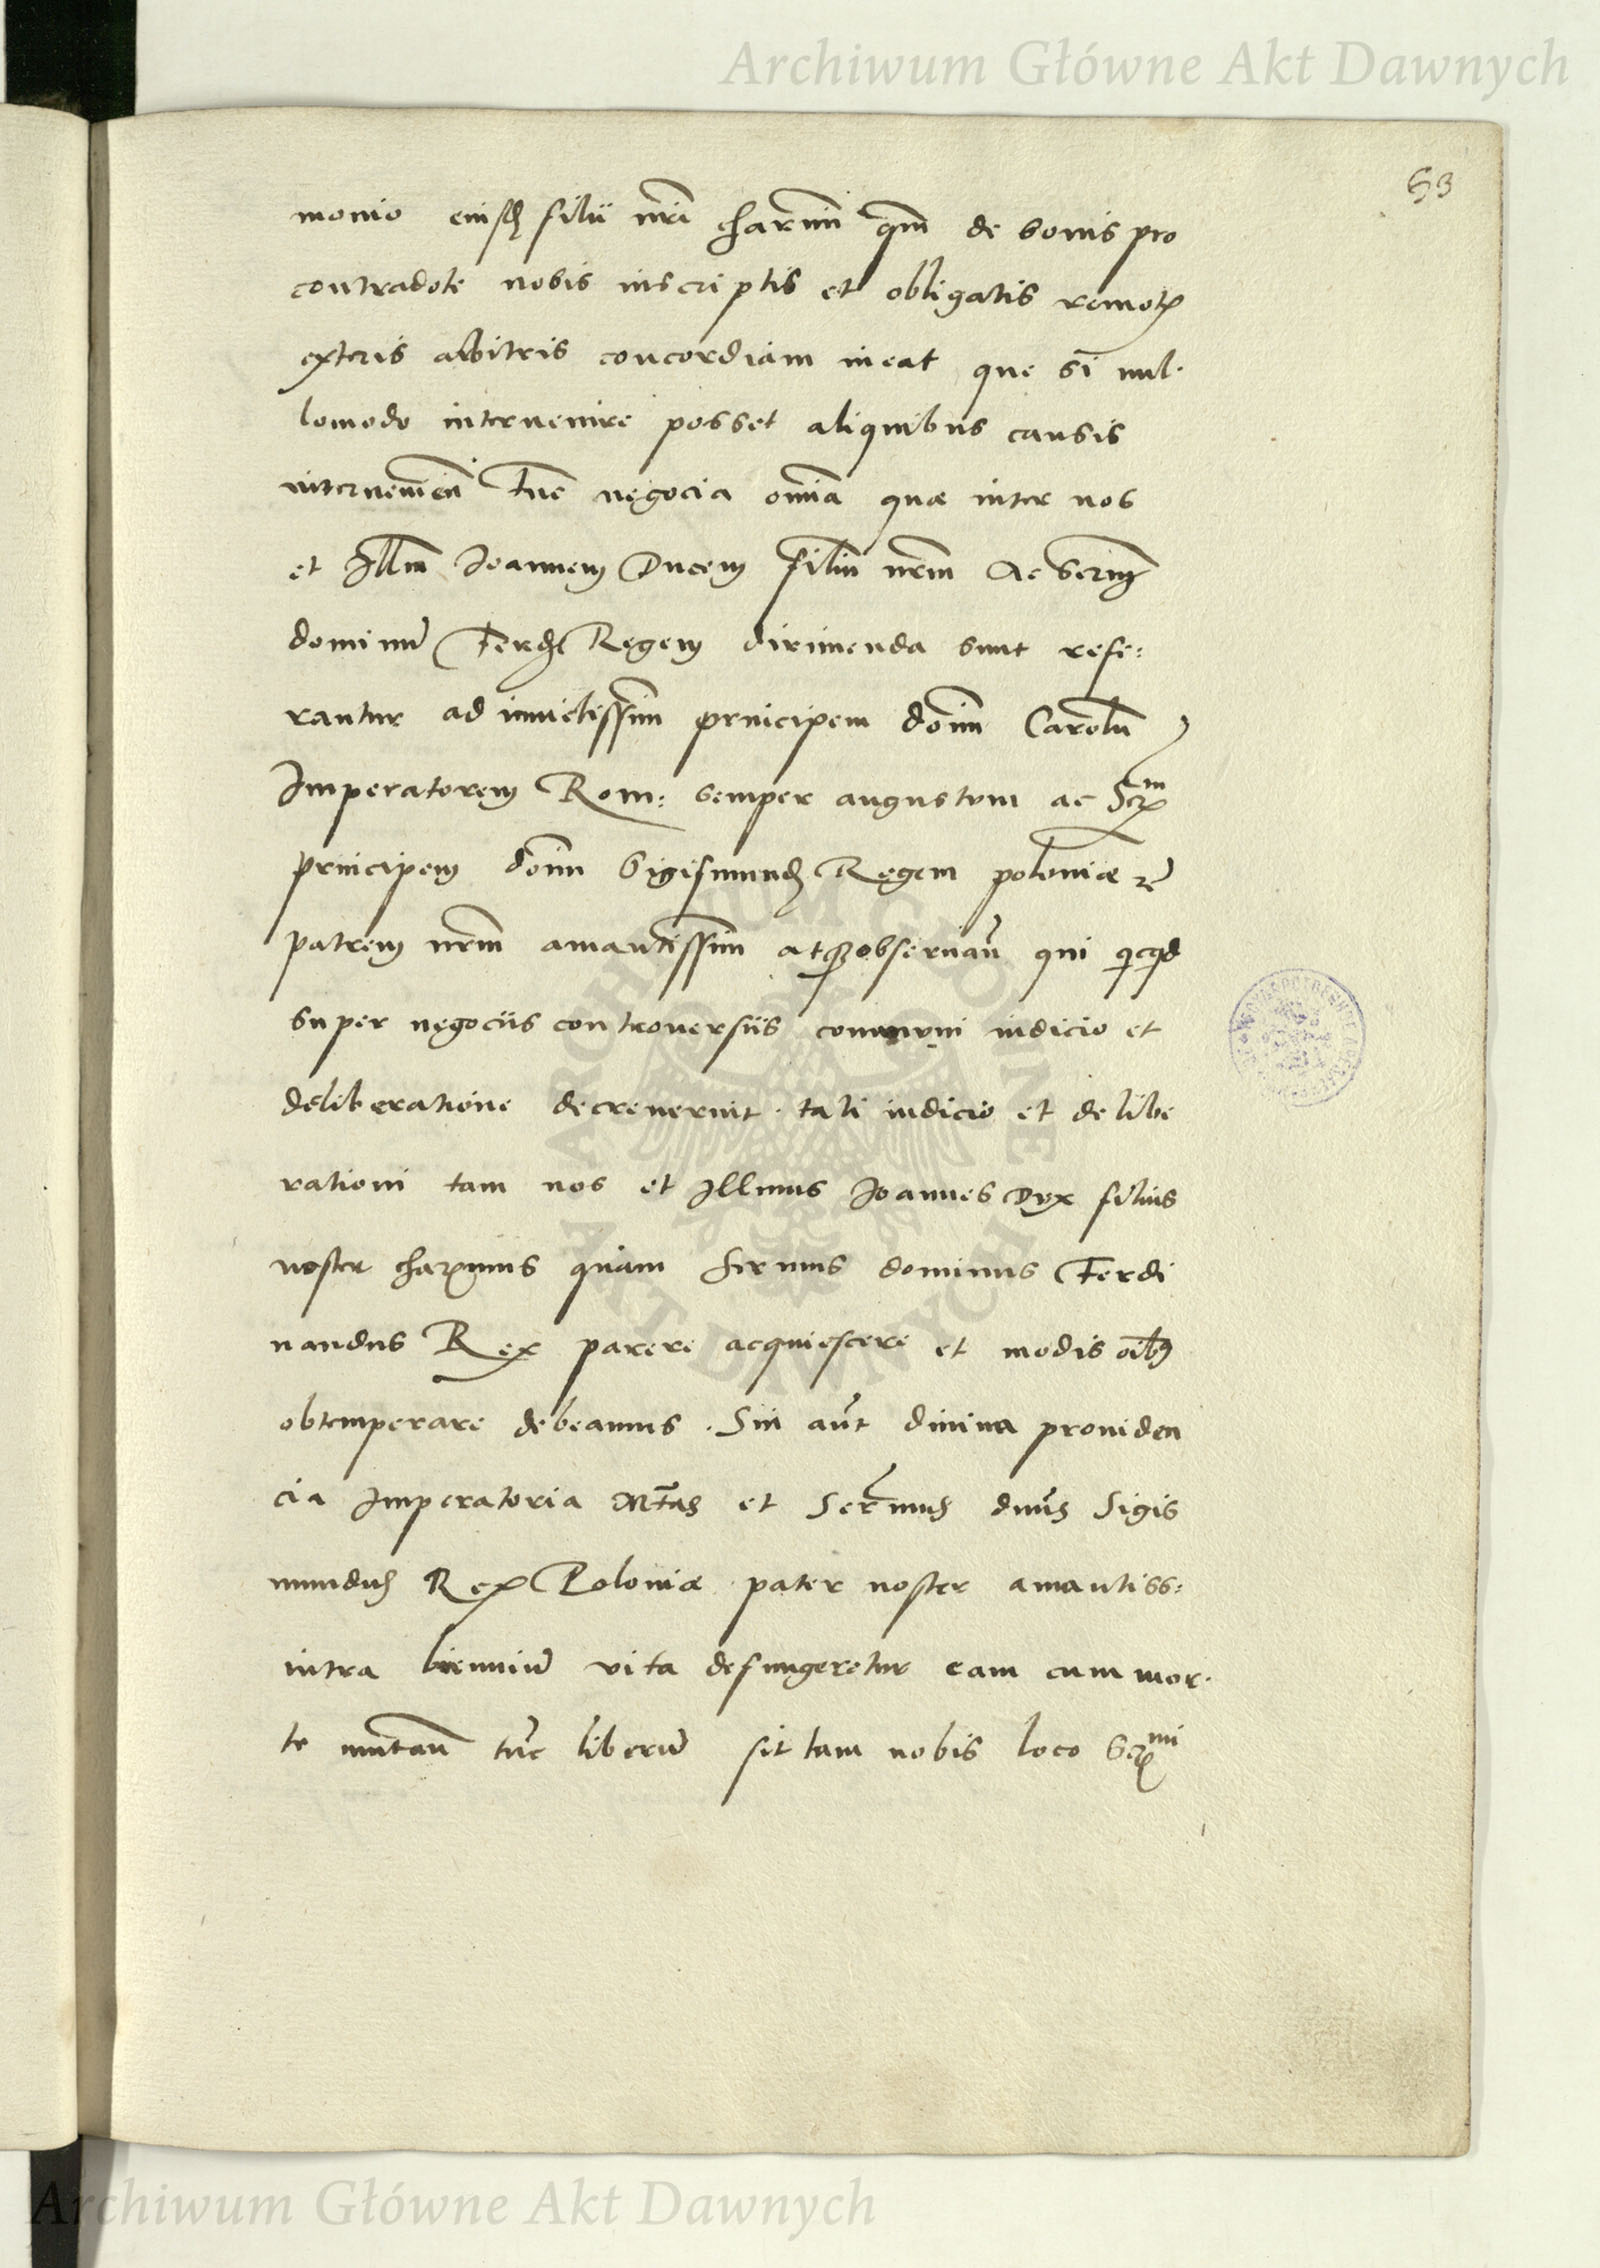 Archiwum Główne Akt Dawnych
63
monio eiusd filii nri charmi qm de bonis pro
contradote nobis inscriptis et obligatis remotis
exteris arbitris concordiam ineat que si nul-
lomodo interuenire posset aliquibus causis
interuenien tunc negocia omnia quae inter nos
et Illm Joannem Ducem filiu nrm Ac Serm
dominu Ferd Regem dirimenda sunt refe:
rantur ad inuictissim principem dom Carolu
Imperatorem Rom: semper augustum ac Serm
principem dom Sigismund Regem poloniae etc
patrem nrm amantissim atq obseruan qui qcqd
super negociis controuersiis communi iudicio et
deliberatione decreuerint. tali iudicio et delibe
rationi tam nos et Illmus Joannes Dux filius
noster charmus quam Sermus dominus Ferdi
nandus Rex parere acquiescere et modis oibus
obtemperare debeamus. Sin aut diuina prouiden
cia Imperatoria Mtas et Sermus dnus Sigis
mundus Rex Poloniae pater noster amantiss:
intra bienniu vita defungeretur eam cum mor-
te mutan tuc liberu sit tam nobis loco Sermi
ARCHIWUM GŁÓWNE AKT DAWNYCH
Archiwum Główne Akt Dawnych